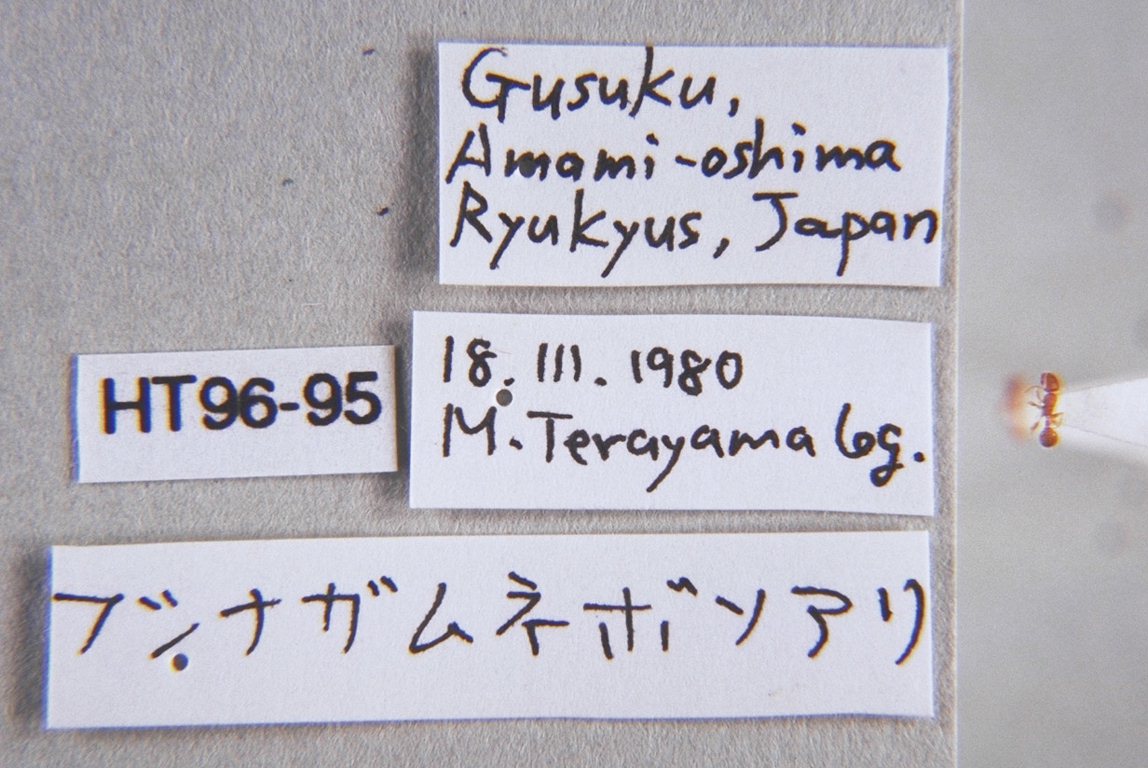 Gusuku,
Amami-oshima
Ryukyus, Japan
18. III. 1980
M. Terayama leg.
HT96-95
フシナガムネボソアリ